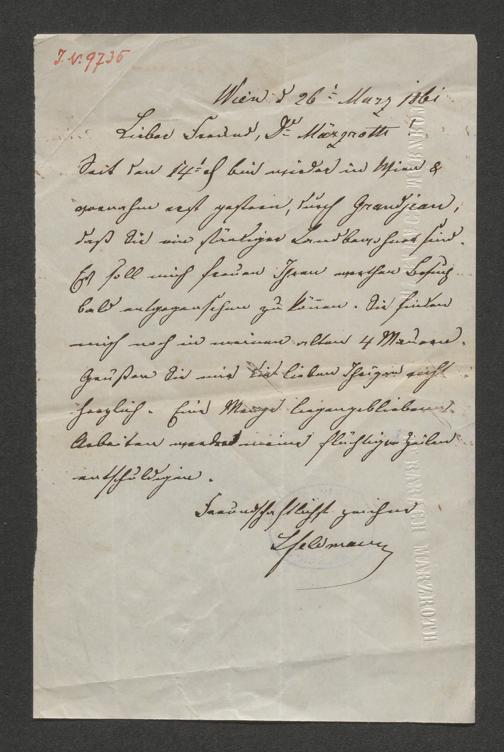 I. N. 9735
Wien d 26t März 1861
Lieber Freund, Dr Märzroth!
Seit den 14t d bin wieder in Wien &
vernahm erst gestern, durch Grandjean,
daß Sie ein ständiger Landbewohner sind.
Es soll mich freuen Ihren werthen Besuch
bald entgegensehen zu können. Sie finden
mich noch in meinen alten 4 Mauern.
Grüßen Sie mir die lieben Ihrigen recht
herzlich. Eine Menge liegengebliebene
Arbeiten werden meine flüchtigen Zeilen
entschuldigen.
Freundschaftlichst zeichne
LFeldmann